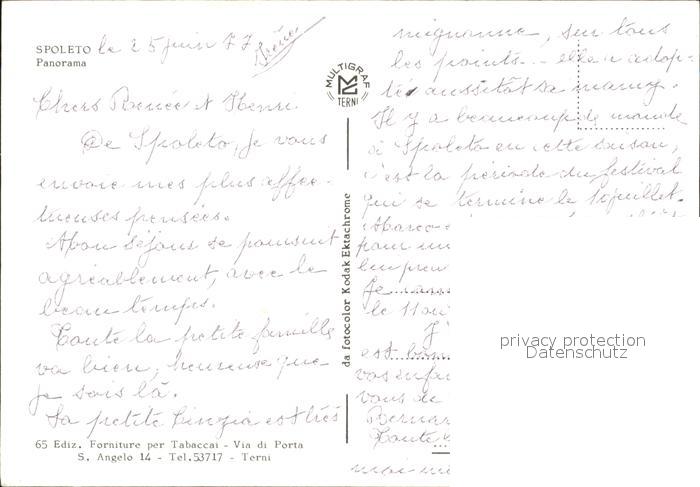 SPOLETO le 25 juin 77
Panorama
Chers Renée et Henri
De Spoleto, je vous
envoie mes plus affec-
tueuses pensées.
Mon séjour se poursuit
agréablement, avec le
beau temps.
Toute la petite famille
va bien, heureuse que
je sois là.
La petite Cinzia est très
65 Ediz. Forniture per Tabaccai - Via di Porta
S. Angelo 14 - Tel.53717 - Terni
MULTIGRAF
TERNI
da fotocolor Kodak Ektachrome
mignonne, sur tous
les points... elle a adop-
té aussitôt sa mamy.
Il y a beaucoup de monde
à Spoleto en cette saison,
c'est la période du festival
qui se termine le 10 juillet.
Marco
pour un
Je
le 11
est
vos enfa
vous de
Bernar
Toute
privacy protection
Datenschutz